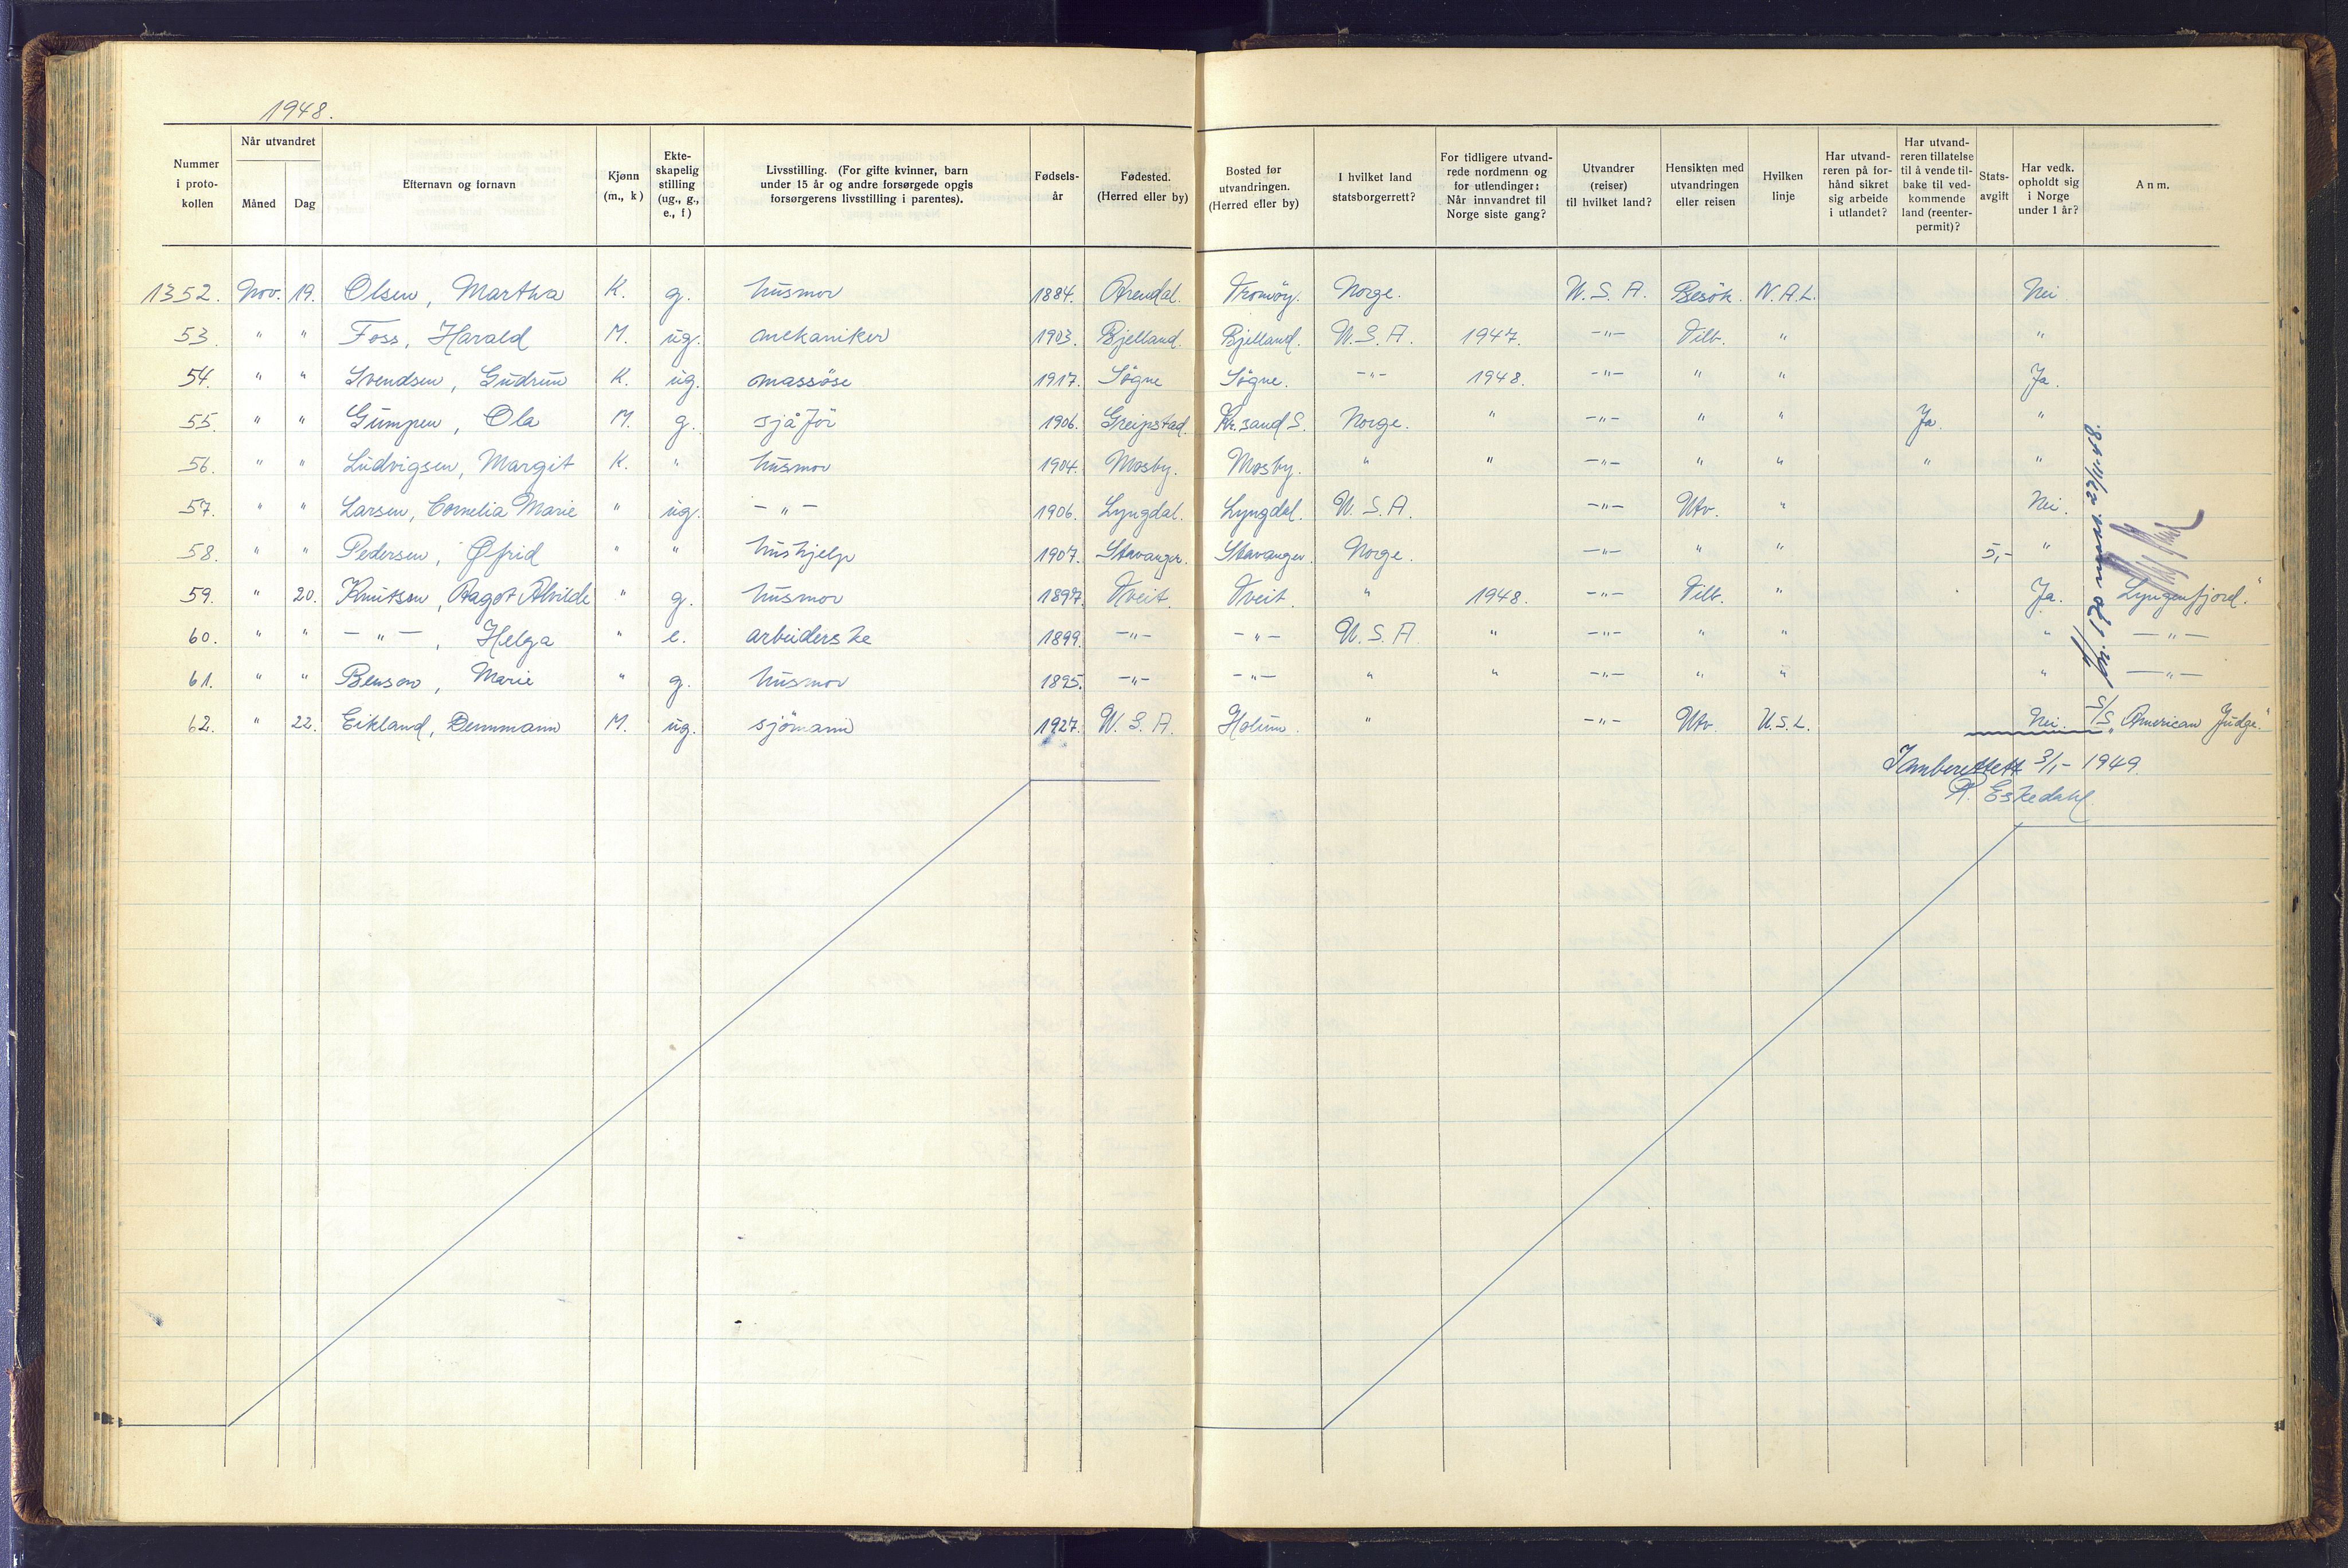 1948.
Nummer i proto-kollen | Når utvandret Måned | Dag | Efternavn og fornavn | Kjønn (m., k) | Ekte-skapelig stilling (ug., g., e., f) | Livsstilling. (For gifte kvinner, barn under 15 år og andre forsørgede opgis forsørgerens livsstilling i parentes). | Fødsels-år | Fødested. (Herred eller by) | Bosted før utvandringen. (Herred eller by) | I hvilket land statsborgerrett? | For tidligere utvand-rede nordmenn og for utlendinger: Når innvandret til Norge siste gang? | Utvandrer (reiser) til hvilket land? | Hensikten med utvandringen eller reisen | Hvilken linje | Har utvand-reren på for-hånd sikret sig arbeide i utlandet? | Har utvand-reren tillatelse til å vende til-bake til ved-kommende land (reenter-permit)? | Stats-avgift | Har vedk. opholdt sig i Norge under 1 år? | Anm.
1352. Nov. 19. Olsen, Martha K. g. husmor 1884. Arendal. Tromøy. Norge. U.S.A. Besøk. N.A.L. Nei
53. " " Foss, Harald M. ug. mekaniker 1903. Bjelland. Bjelland. U.S.A. 1947. -"- Tilb. " "
54. " " Svendsen, Gudrun K. ug. massøse 1917. Søgne Søgne. -"- 1948. -"- " " Ja.
55. " " Gumpen, Ola M. g. sjåfør 1906. Greipstad. Kr.sand S. Norge. " -"- " " Ja. "
56. " " Ludvigsen, Margit K. " husmor 1904. Mosby. Mosby. " " -"- " " " "
57. " " Larsen, Cornelia Marie " ug. -"- 1906. Lyngdal. Lyngdal. U.S.A. -"- Utv. " Nei.
58. " " Pedersen, Øfrid " " hushjelp 1907. Stavanger. Stavanger. Norge. -"- " " 5,- "
59. " 20. Knutsen, Aagot Alvilde " g. husmor 1897. Tveit. Tveit. " 1948. -"- Tilb. " Ja. "Lyngenfjord."
60. " " -"-, Helga " e. arbeiderske 1899. -"- -"- U.S.A. " -"- " " " -"-
61. " " Benson, Marie " g. husmor 1895. -"- -"- " " -"- " " " -"-
62. " 22. Eikland, Denmmann M. ug. sjømann 1927. U.S.A. Holum. " -"- Utv. U.S.L. Nei. S/S "American Judge."
22/11-48.
3/1- 1949.
R. Eskedahl